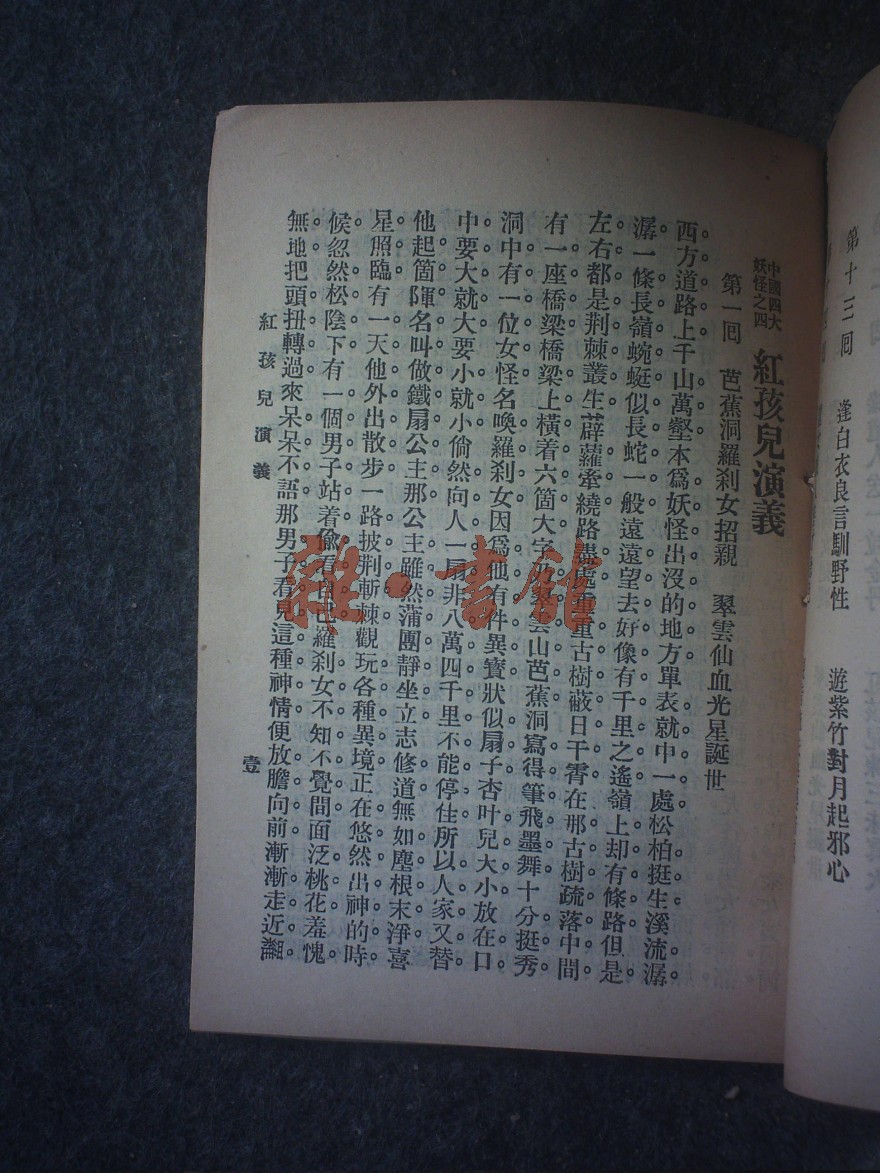 第十三回　逢白衣良言馴野性　遊紫竹對月起邪心
中國四大
妖怪之四
紅孩兒演義
第一回　芭蕉洞羅刹女招親　翠雲仙血光星誕世
西方道路上千山萬壑本爲妖怪出沒的地方單表就中一處松柏挺生溪流潺
潺一條長嶺蜿蜒似長蛇一般遠遠望去好像有千里之遙嶺上却有條路但是
左右都是荆棘叢生薜蘿牽繞路盡處重重古樹蔽日干霄在那古樹疏落中間
有一座橋梁橋梁上橫着六箇大字翠雲山芭蕉洞寫得筆飛墨舞十分挺秀
洞中有一位女怪名喚羅刹女因爲他有件異寶狀似扇子杏叶兒大小放在口
中要大就大要小就小倘然向人一扇非八萬四千里不能停住所以人家又替
他起箇諢名叫做鐵扇公主那公主雖然蒲團靜坐立志修道無如塵根未淨喜
星照臨有一天他外出散步一路披荆斬棘觀玩各種異境正在悠然出神的時
候忽然松陰下有一個男子站着偸看羅刹女不知不覺間面泛桃花羞愧
無地把頭扭轉過來呆呆不語那男子看見這種神情便放膽向前漸漸走近
紅孩兒演義
壹
雜·書館